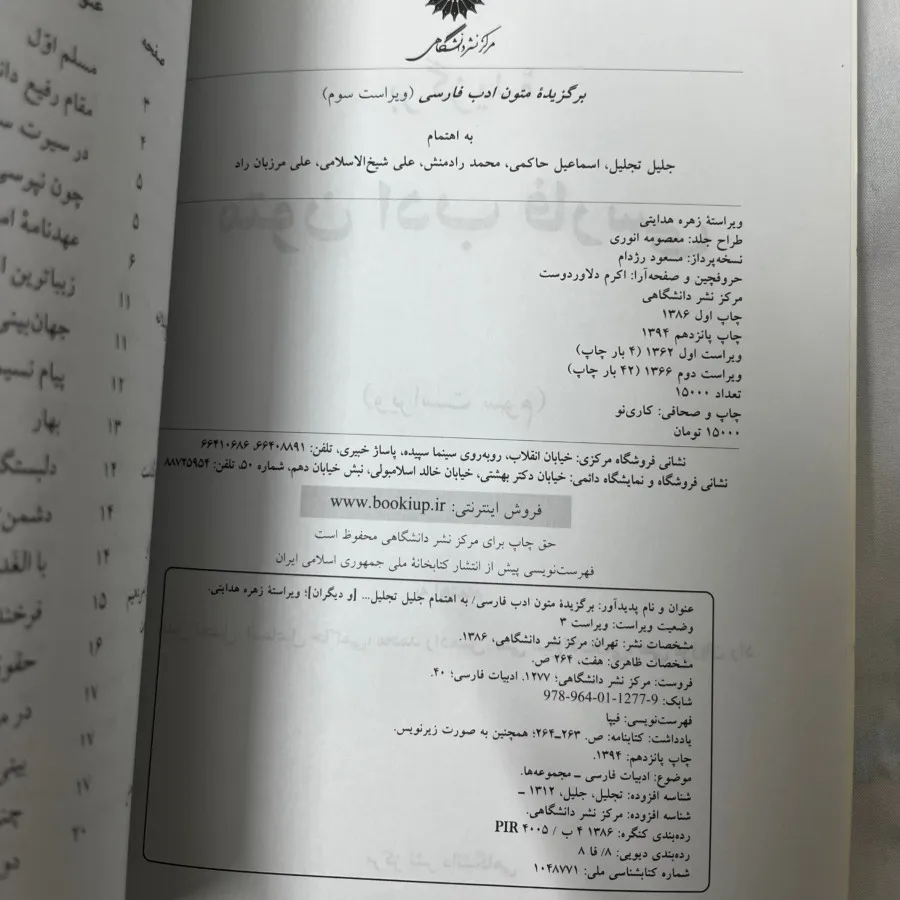 مرکز نشر دانشگاهی
برگزیدهٔ متون ادب فارسی (ویراست سوم)
به اهتمام
جلیل تجلیل، اسماعیل حاکمی، محمد رادمنش، علی شیخ‌الاسلامی، علی مرزبان راد
ویراستهٔ زهره هدایتی
طراح جلد: معصومه انوری
نسخه‌پرداز: مسعود رژدام
حروفچین و صفحه‌آرا: اکرم دلاوردوست
مرکز نشر دانشگاهی
چاپ اول ۱۳۸۶
چاپ پانزدهم ۱۳۹۴
ویراست اول ۱۳۶۲ (۴ بار چاپ)
ویراست دوم ۱۳۶۶ (۴۲ بار چاپ)
تعداد ۱۵۰۰۰
چاپ و صحافی: کاری‌نو
۱۵۰۰۰ تومان
نشانی فروشگاه مرکزی: خیابان انقلاب، روبه‌روی سینما سپیده، پاساژ خیبری، تلفن: ۶۶۴۰۸۸۹۱، ۶۶۴۱۰۶۸۶
نشانی فروشگاه و نمایشگاه دائمی: خیابان دکتر بهشتی، خیابان خالد اسلامبولی، نبش خیابان دهم، شماره ۵۰، تلفن: ۸۸۷۲۵۹۵۴
فروش اینترنتی: www.bookiup.ir
حق چاپ برای مرکز نشر دانشگاهی محفوظ است
فهرست‌نویسی پیش از انتشار کتابخانهٔ ملی جمهوری اسلامی ایران
عنوان و نام پدیدآور: برگزیدهٔ متون ادب فارسی/ به اهتمام جلیل تجلیل... [و دیگران]؛ ویراستهٔ زهره هدایتی.
وضعیت ویراست: ویراست ۳
مشخصات نشر: تهران: مرکز نشر دانشگاهی، ۱۳۸۶.
مشخصات ظاهری: هفت، ۲۶۴ ص.
فروست: مرکز نشر دانشگاهی؛ ۱۲۷۷. ادبیات فارسی؛ ۴۰.
شابک: 978-964-01-1277-9
فهرست‌نویسی: فیپا
یادداشت: کتابنامه: ص. ۲۶۳ـ۲۶۴؛ همچنین به صورت زیرنویس.
چاپ پانزدهم: ۱۳۹۴.
موضوع: ادبیات فارسی ـ مجموعه‌ها.
شناسه افزوده: تجلیل، جلیل، ۱۳۱۲ ـ
شناسه افزوده: مرکز نشر دانشگاهی.
رده‌بندی کنگره: ۱۳۸۶ ۴ ب / PIR ۴۰۰۵
رده‌بندی دیویی: ۸/ فا ۸
شماره کتابشناسی ملی: ۱۰۴۸۷۷۱
صفحه
مسلم اوّل ۳
مقام رفیع ۴
در سیرت ۵
چون نپرسی ۵
عهدنامهٔ ۶
زیباترین ۱۱
جهان‌بینی ۱۱
پیام نسیم ۱۲
بهار ۱۳
۱۴
دشمن ۱۴
۱۴
۱۵
۱۶
۱۷
۱۷
۱۷
۲۰